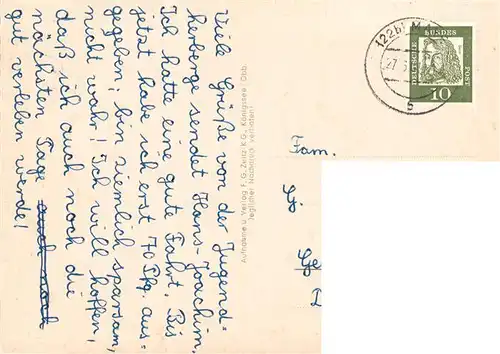 Viele Grüße von der Jugend=
herberge sendet Hans-Joachim.
Ich hatte eine gute Fahrt. Bis
jetzt habe ich erst 70 Pfg. aus=
gegeben; bin ziemlich sparsam,
nicht wahr! Ich will hoffen,
daß ich auch noch die
nächsten Tage auch noch
gut verleben werde!
Aufnahme u. Verlag F. G. Zeitz K.G., Königssee / Obb.
(Jeglicher Nachdruck verboten)
DEUTSCHE BUNDESPOST
10
Fam.